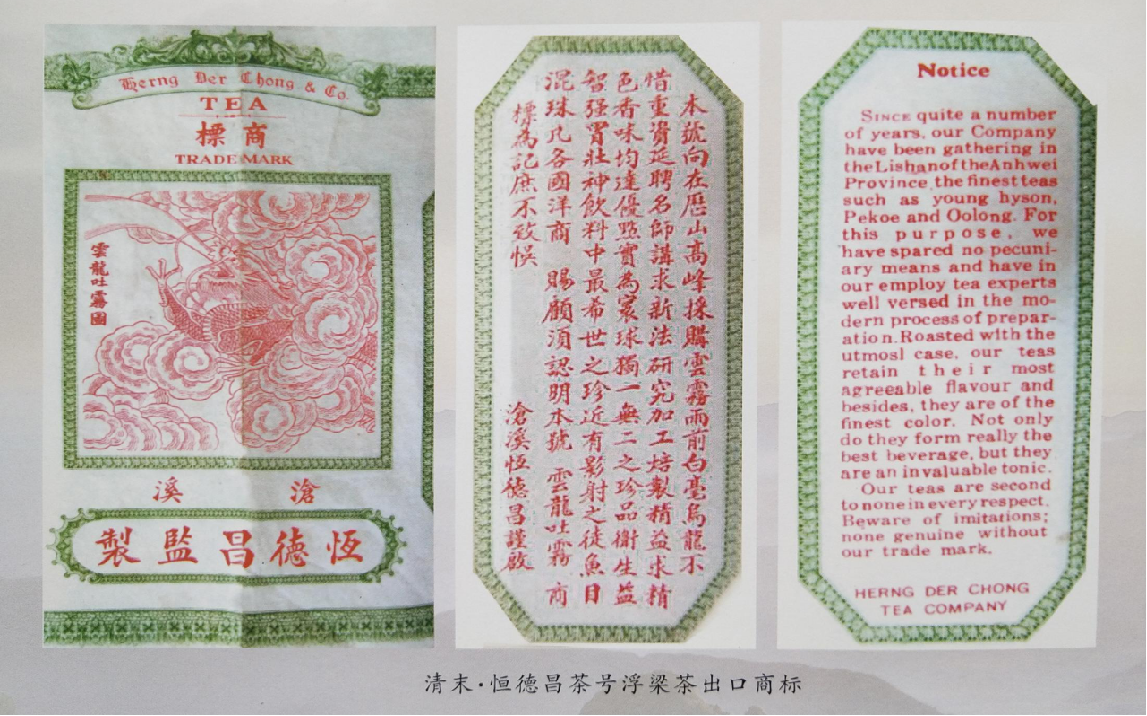 Herng Der Chong & Co.
TEA
商標
TRADE MARK
雲龍吐霧圖
滄溪
恆德昌監製
本號向在厯山高峰採購雲霧雨前白毫烏龍不
惜重資延聘名師講求新法研究加工焙製精益求精
色香味均達優點實為寰球獨一無二之珍品衛生益
智强胃壯神飲料中最希世之珍近有影射之徒魚目
混珠凡各國洋商 賜顧須認明本號 雲龍吐霧 商
標為記庶不致悞
滄溪恆德昌謹啟
Notice
SINCE quite a number
of years, our Company
have been gathering in
the Lishan of the Anhwei
Province, the finest teas
such as young hyson,
Pekoe and Oolong. For
this purpose, we
have spared no pecuni-
ary means and have in
our employ tea experts
well versed in the mo-
dern process of prepar-
ation. Roasted with the
utmosl case, our teas
retain their most
agreeable flavour and
besides, they are of the
finest color. Not only
do they form really the
best beverage, but they
are an invaluable tonic.
Our teas are second
to none in every respect.
Beware of imitations;
none genuine without
our trade mark.
HERNG DER CHONG
TEA COMPANY
清末·恒德昌茶号浮梁茶出口商标